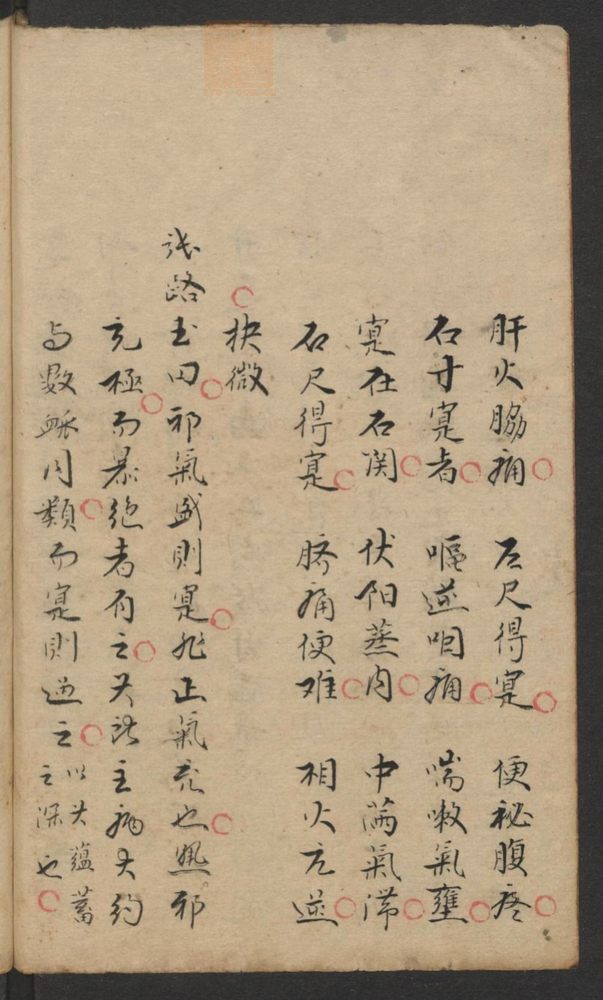 肝火脇痛 左尺得寔 便秘腹疼
右寸寔者 嘔逆咽痛 喘嗽氣壅
寔在右関 伏阳蒸内 中滿氣滞
右尺得寔 臍痛便难 相火亢逆
抉微
张路玉曰邪氣盛則寔非正氣充也熱邪
亢極而暴絶者有之其所主病大约
与數脉同類而寔則過之
以其蘊蓄
之深也